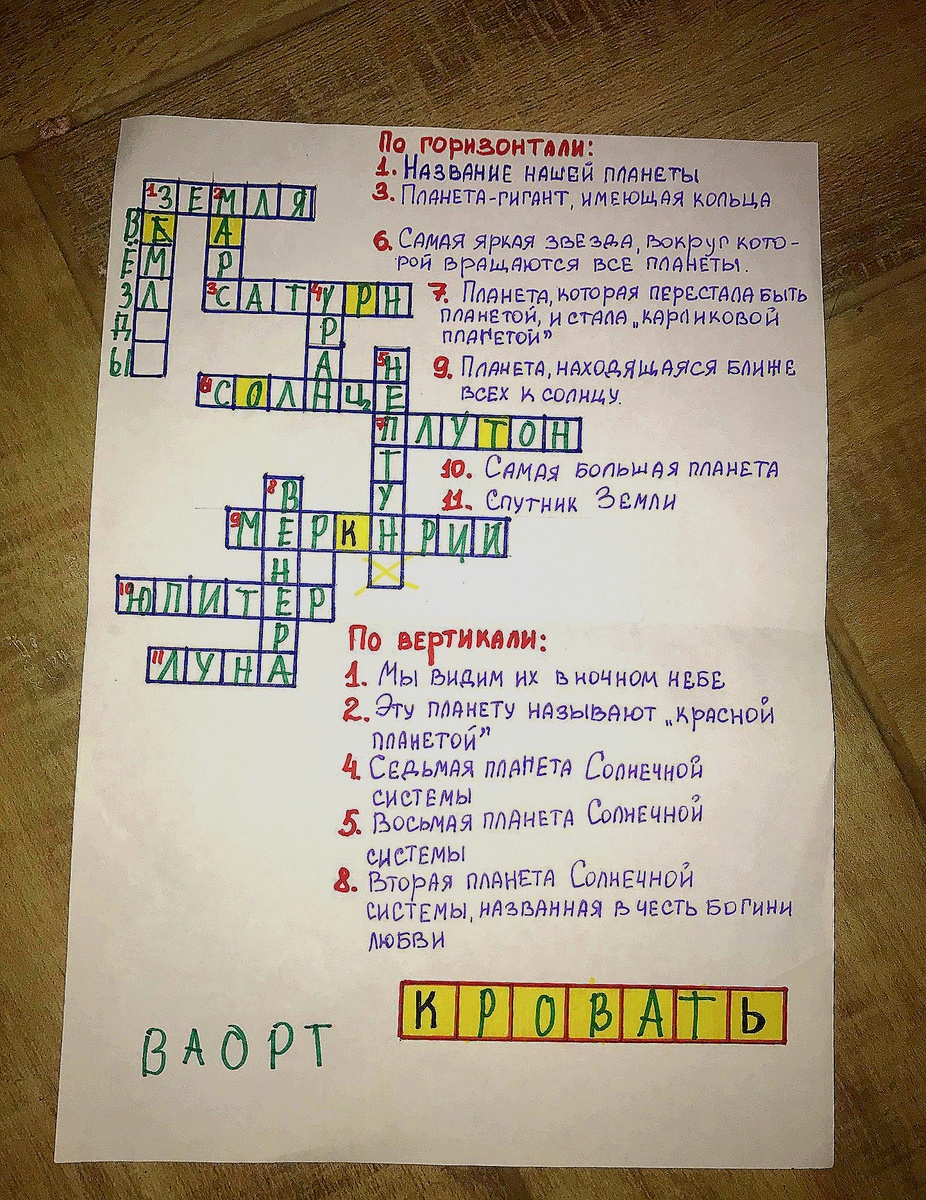 По горизонтали:
1. Название нашей планеты
3. Планета-гигант, имеющая кольца
6. Самая яркая звезда, вокруг кото-
рой вращаются все планеты.
7. Планета, которая перестала быть
планетой, и стала „карликовой
планетой”
9. Планета, находящаяся ближе
всех к солнцу.
10. Самая большая планета
11. Спутник Земли
1 ЗЕМЛЯ
2 МАРС
ВЁЗДЫ
МЛ
3 САТУРН
4 УРАН
5 НЕПТУН
6 СОЛНЦЕ
7 ПЛУТОН
8 ВЕНЕРА
9 МЕРКНРИЙ
10 ЮПИТЕР
11 ЛУНА
По вертикали:
1. Мы видим их в ночном небе
2. Эту планету называют „красной
планетой”
4. Седьмая планета Солнечной
системы
5. Восьмая планета Солнечной
системы
8. Вторая планета Солнечной
системы, названная в честь богини
любви
КРОВАТЬ
ВАОРТ